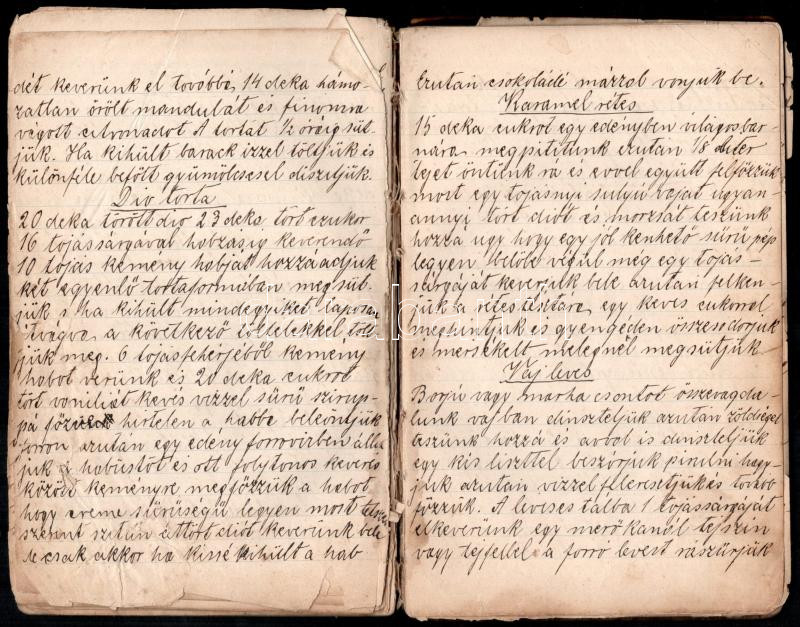 dét keverünk el továbbá, 14 deka hámo-
zatlan őrölt mandulát és finomra
vágott citronádot A tortát ½ óráig süt-
jük. Ha kihült barack izzel töltjük és
különféle befőtt gyümölcsesel diszitjük.
Dio torta
20 deka törött dio 23 deka tört czukor
16 tojássárgával habzásig keverendő
10 tojás kemény habját hozzá adjuk
két egyenlő tortaformában megsüt-
jük s ha kihült mindegyiket laposan
átvágva a következő töltelékkel tölt
jük meg. 6 tojásfehérjéből kemény
habot verünk és 20 deka cukrot
tört vaniliát kevés vizzel sürü szirup-
pá főzünk hirtelen a habba beleöntjük
forrón azután egy edény forróvizben állit
juk a habüstöt és ott folytonos keverés
közben keményre megfőzzük a habot
hogy creme sürüségü legyen most
szerint szitán áttört diót keverünk bele
de csak akkor ha kissé kihült a hab
Ezután csokoládé mázzal vonjuk be.
Karamel rétes
15 deka cukrot egy edényben világosbar-
nára megpiritunk ezután 1/8 liter
tejet öntünk rá és evvel együtt felfőzzük
most egy tojásnyi sulyú vajat ugyan-
annyi tört diót és morzsát teszünk
hozzá ugy hogy egy jól kenhető sürü pép
legyen belőle végül még egy tojás-
sárgáját keverjük bele azután felken-
jük a rétestésztára egy kevés cukorral
meghintjük és gyengéden összesodorjuk
és mérsékelt melegnél megsütjük.
Vaj leves
Borjú vagy marha csontot összevagda-
lunk vajban dinszteljük azután zöldséget
teszünk hozzá és avval is dunszteljük
egy kis liszttel beszórjuk pirulni hagy-
juk azután vizzel feleresztjük és tovább
főzzük. A leveses tálba 1 tojássárgáját
elkeverünk egy merőkanál tejszin
vagy tejfellel a forró levest rászürjük